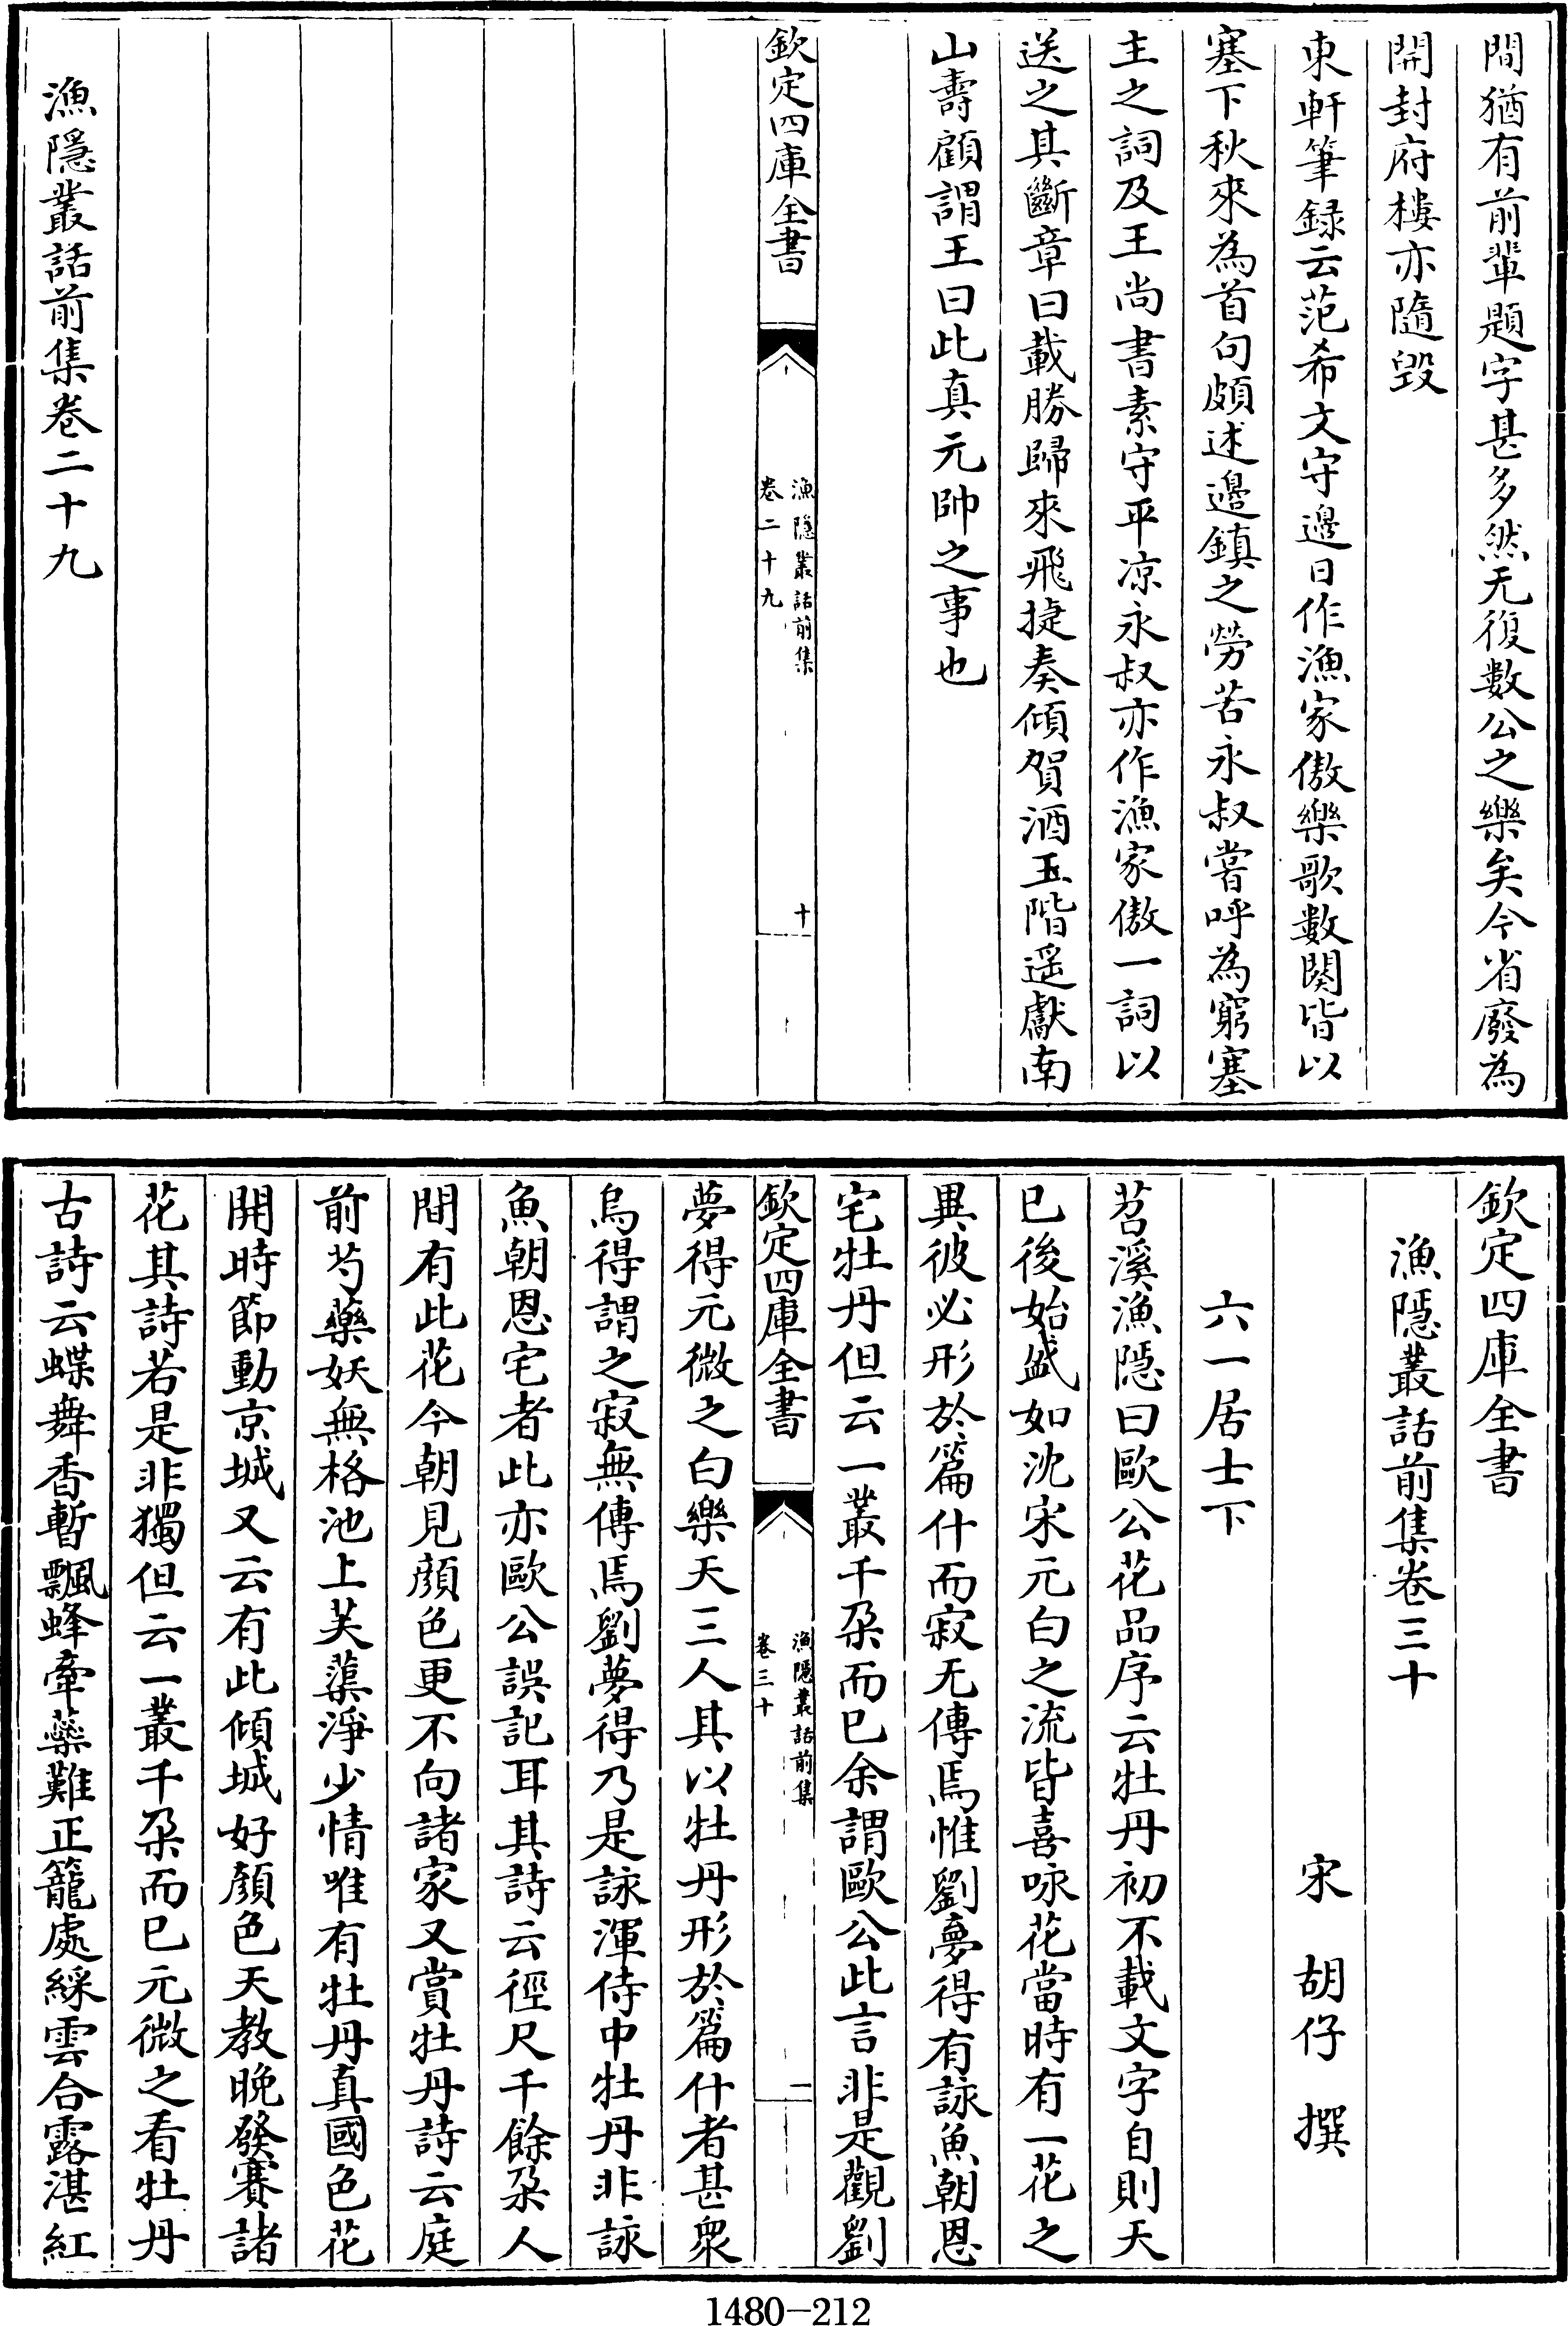 間猶有前輩題字甚多然无復數公之樂矣今省廢為
開封府樓亦隨毀
東軒筆録云范希文守邊日作漁家傲樂歌數闋皆以
塞下秋來為首句頗述邊鎮之勞苦永叔嘗呼為窮塞
主之詞及王尚書素守平凉永叔亦作漁家傲一詞以
送之其斷章曰載勝歸來飛捷奏傾賀酒玉階遥獻南
山壽顧謂王曰此真元帥之事也
欽定四庫全書
漁隱叢話前集
卷二十九
十
漁隱叢話前集卷二十九
欽定四庫全書
漁隱叢話前集卷三十
宋 胡仔 撰
六一居士下
苕溪漁隱曰歐公花品序云牡丹初不載文字自則天
已後始盛如沈宋元白之流皆喜咏花當時有一花之
異彼必形於篇什而寂无傳焉惟劉夢得有詠魚朝恩
宅牡丹但云一叢千朶而已余謂歐公此言非是觀劉
欽定四庫全書
漁隱叢話前集
卷三十
一
夢得元微之白樂天三人其以牡丹形於篇什者甚衆
烏得謂之寂無傳焉劉夢得乃是詠渾侍中牡丹非詠
魚朝恩宅者此亦歐公誤記耳其詩云徑尺千餘朶人
間有此花今朝見顔色更不向諸家又賞牡丹詩云庭
前芍藥妖無格池上芙蕖淨少情唯有牡丹真國色花
開時節動京城又云有此傾城好顔色天教晚發賽諸
花其詩若是非獨但云一叢千朶而已元微之看牡丹
古詩云蝶舞香暫飄蜂牽蘂難正籠處綵雲合露湛紅
1480-212